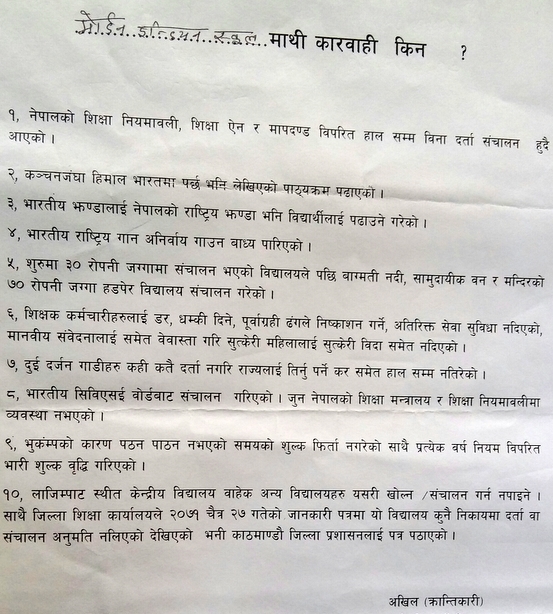 मोर्डन इन्डियन स्कूल माथी कारवाही किन ?
१, नेपालको शिक्षा नियमावली, शिक्षा ऐन र मापदण्ड विपरित हाल सम्म विना दर्ता संचालन हुदै
आएको ।
२, कञ्चनजंघा हिमाल भारतमा पर्छ भनि लेखिएको पाठ्यक्रम पढाएको ।
३, भारतीय झण्डालाई नेपालको राष्ट्रिय झण्डा भनि विद्यार्थीलाई पढाउने गरेको ।
४, भारतीय राष्ट्रिय गान अनिर्वाय गाउन वाध्य पारिएको ।
५, शुरुमा ३० रोपनी जग्गामा संचालन भएको विद्यालयले पछि वाग्मती नदी, सामुदायीक वन र मन्दिरको
७० रोपनी जग्गा हडपेर विद्यालय संचालन गरेको ।
६, शिक्षक कर्मचारीहरुलाई डर, धम्की दिने, पूर्वाग्रही ढंगले निष्काशन गर्ने, अतिरिक्त सेवा सुविधा नदिएको,
मानवीय संवेदनालाई समेत वेवास्ता गरि सुत्केरी महिलालाई सुत्केरी विदा समेत नदिएको ।
७, दुई दर्जन गाडीहरु कही कतै दर्ता नगरि राज्यलाई तिर्नु पर्ने कर समेत हाल सम्म नतिरेको ।
८, भारतीय सिविएसई वोर्डबाट संचालन गरिएको । जुन नेपालको शिक्षा मन्त्रालय र शिक्षा नियमावलीमा
व्यवस्था नभएको ।
९, भुकंम्पको कारण पठन पाठन नभएको समयको शुल्क फिर्ता नगरेको साथै प्रत्येक वर्ष नियम विपरित
भारी शुल्क वृद्धि गरिएको ।
१०, लाजिम्पाट स्थीत केन्द्रीय विद्यालय वाहेक अन्य विद्यालयहरु यसरी खोल्न /संचालन गर्न नपाइने ।
साथै जिल्ला शिक्षा कार्यालयले २०७१ चैत्र २७ गतेको जानकारी पत्रमा यो विद्यालय कुनै निकायमा दर्ता वा
संचालन अनुमति नलिएको देखिएको भनी काठमाण्डौ जिल्ला प्रशासनलाई पत्र पठाएको ।
अखिल (क्रान्तिकारी)